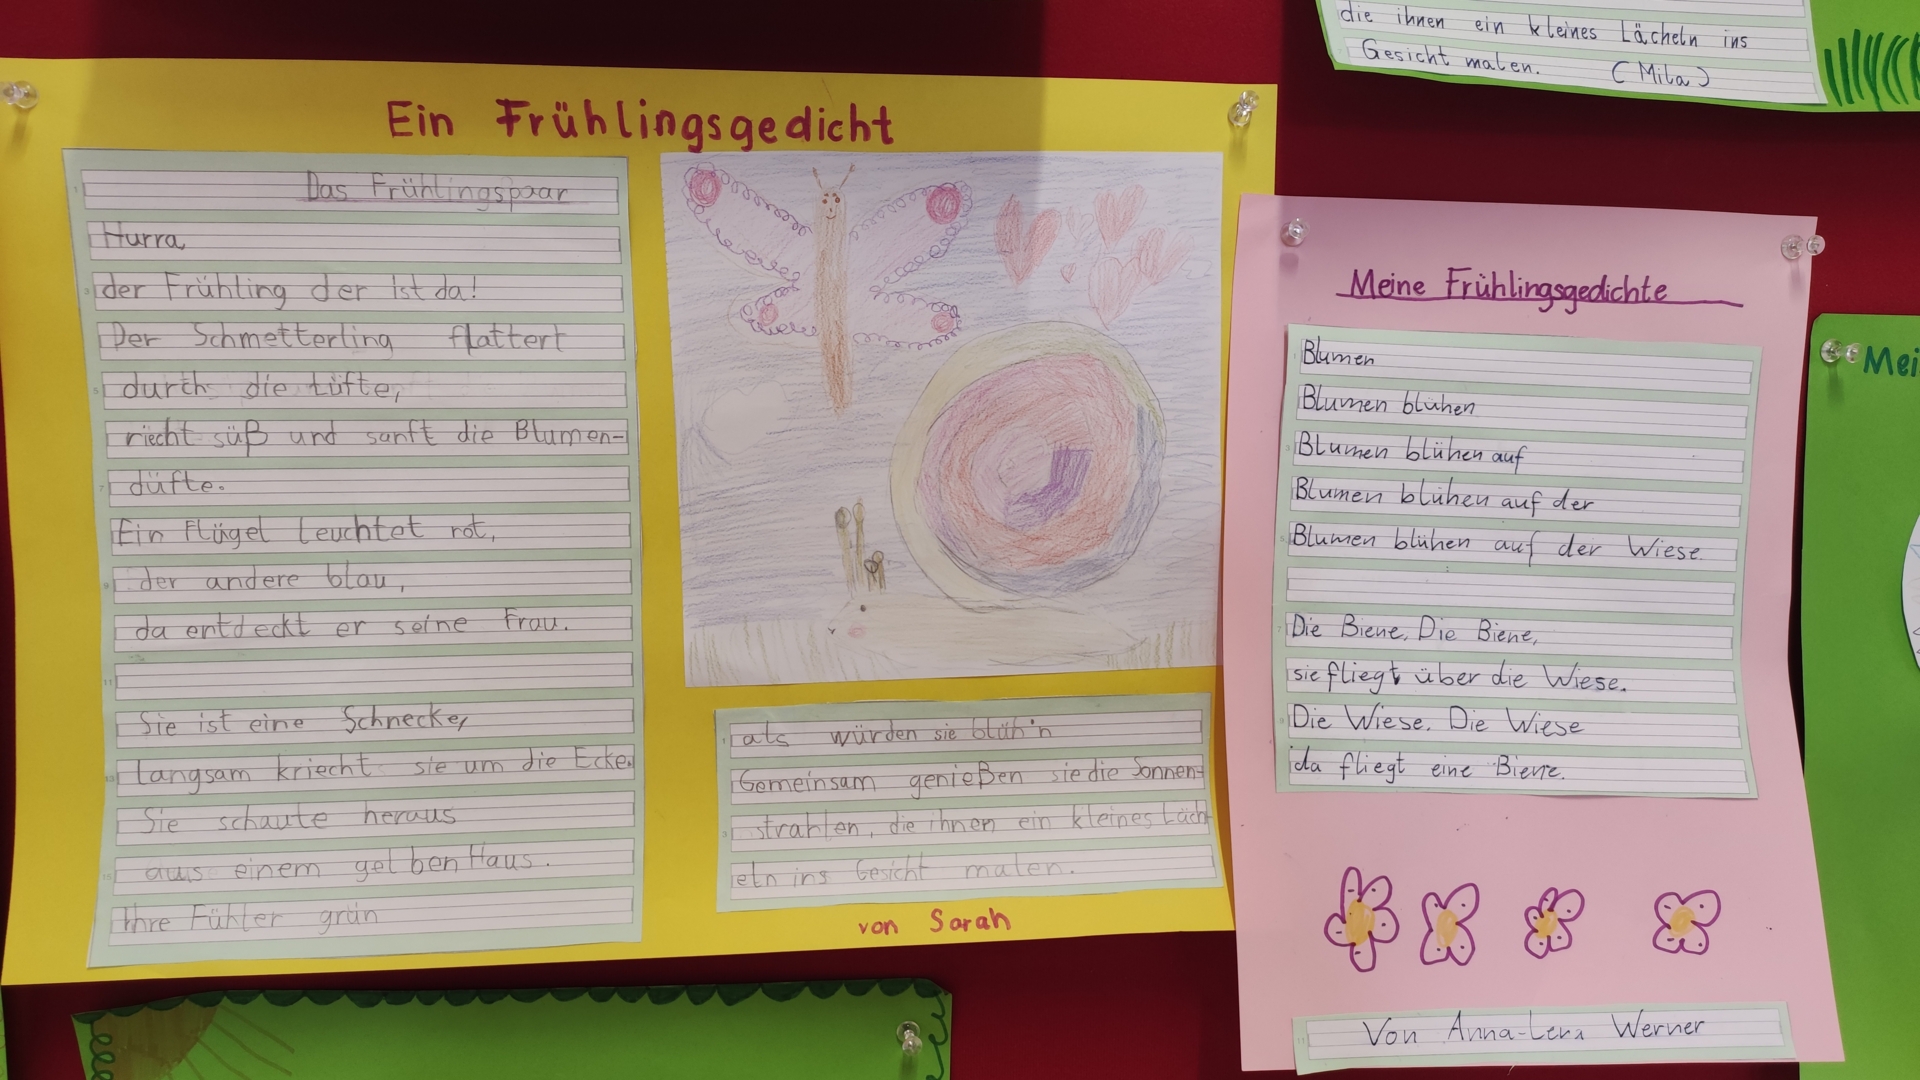 die ihnen ein kleines Lächeln ins
Gesicht malen. (Mila)
Ein Frühlingsgedicht
Das Frühlingspaar
Hurra
der Frühling der ist da!
Der Schmetterling flattert
durch die Lüfte,
riecht süß und sanft die Blumen-
düfte.
Ein Flügel leuchtet rot,
der andere blau,
da entdeckt er seine Frau.
Sie ist eine Schnecke,
langsam kriecht sie um die Ecke.
Sie schaute heraus
aus einem gelben Haus.
Ihre Fühler grün
als würden sie blüh'n
Gemeinsam genießen sie die Sonnen-
strahlen, die ihnen ein kleines Läch-
eln ins Gesicht malen.
von Sarah
Meine Frühlingsgedichte
Blumen
Blumen blühen
Blumen blühen auf
Blumen blühen auf der
Blumen blühen auf der Wiese
Die Biene, Die Biene,
sie fliegt über die Wiese.
Die Wiese. Die Wiese
da fliegt eine Biene.
Von Anna-Lena Werner
Mei